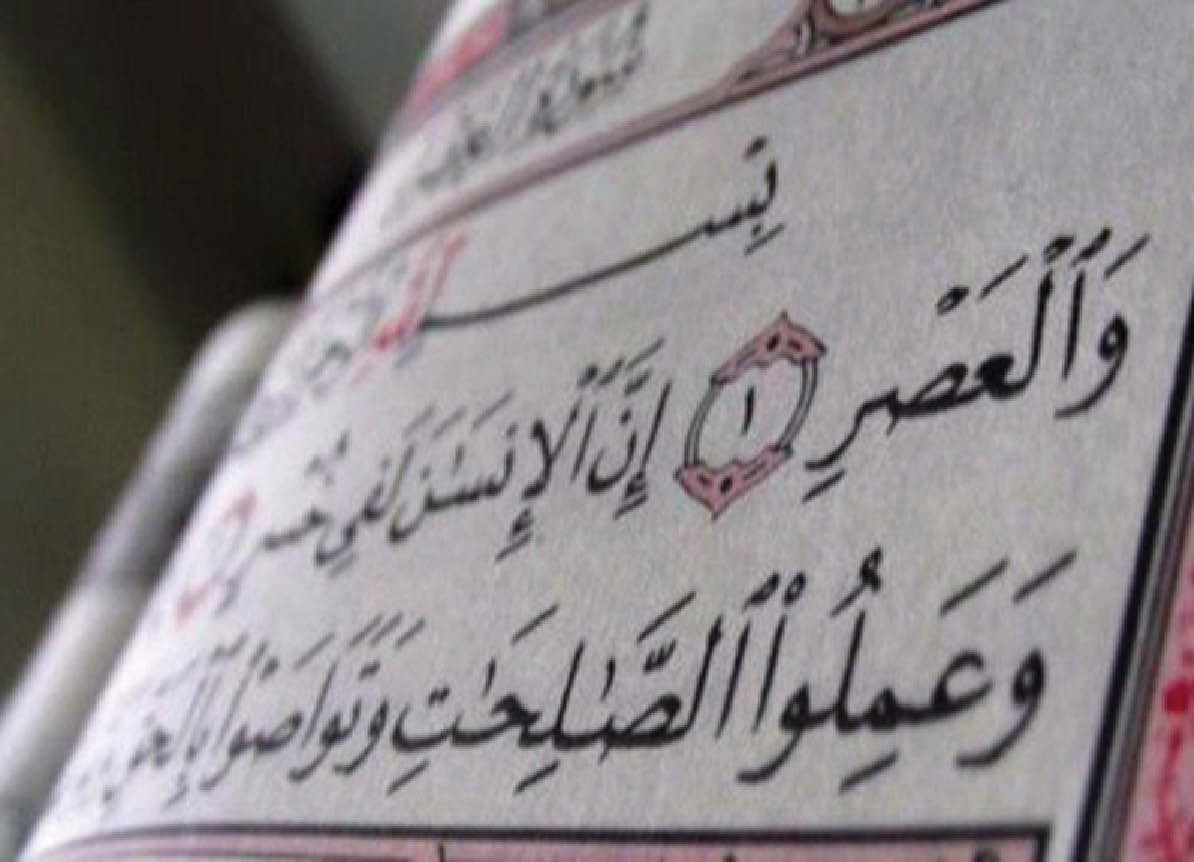 بِسْـــمِ
وَٱلْعَصْرِ ١ إِنَّ ٱلْإِنسَٰنَ لَفِى خُسْرٍ
وَعَمِلُوا۟ ٱلصَّٰلِحَٰتِ وَتَوَاصَوْا۟ بِٱلْحَقِّ